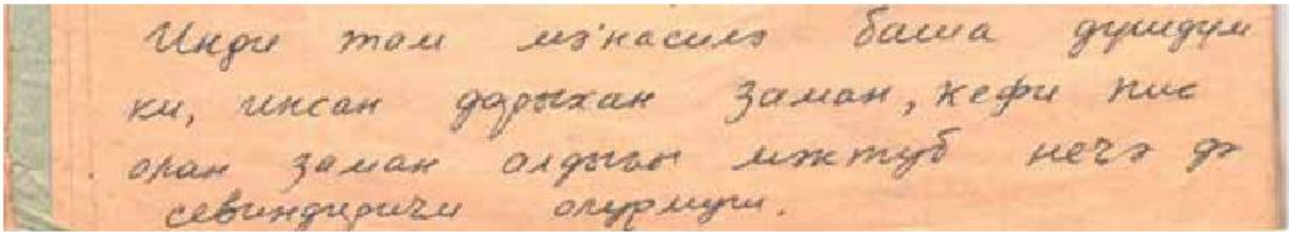 Инди там мә'насилә баша дүшдүм
ки, инсан дарыхан заман, кефи пис
олан заман алдығы мәктуб нечә дә
севиндиричи олурмуш.